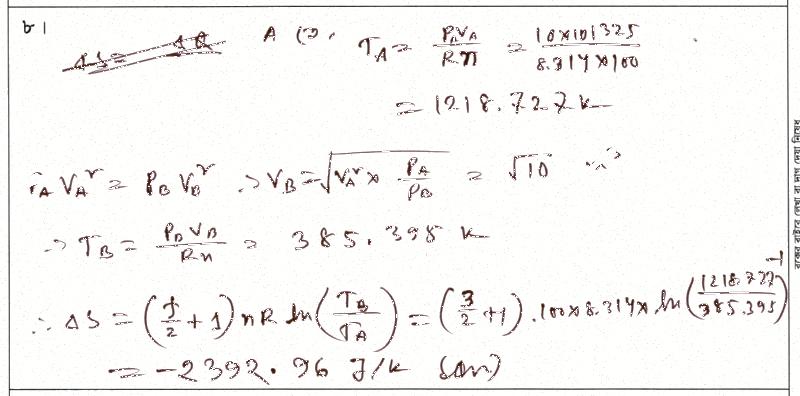 ৮।
A তে, T_A = P_A V_A / Rn = 10×101325 / 8.314×100
= 1218.727 K
P_A V_A² = P_B V_B² ∴ V_B = √(V_A² × P_A / P_B) = √10 m³
∴ T_B = P_B V_B / Rn = 385.395 K
∴ ΔS = (f/2 + 1) nR ln(T_B / T_A) = (3/2 + 1) . 100×8.314× ln(1218.727 / 385.395)⁻¹
= -2392.96 J/K (Ans)